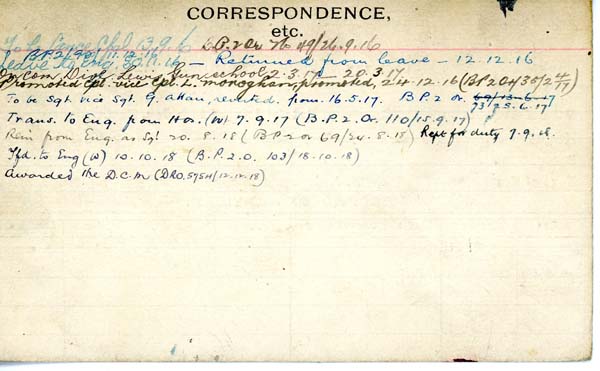 CORRESPONDENCE,
etc.
13.9.16 B.P.2 Or No 49/26.9.16
Leave to Eng 30.11.16 — Returned from leave — 12.12.16
On Com Divl. Lewis Gun school 2.3.17 — 20.3.17
Promoted Cpl. vice Cpl. L. Monoghan, promoted, 24.12.16 (B.P.204/30/
To be Sgt vice Sgt. G. from 16.5.17. B.P.2 Or 69/13.6.17
73/25.6.17
Trans. to Eng. from Hos. (W) 7.9.17 (B.P.2.Or. 110/15.9.17)
Rein from Eng. as Sgt 20.8.18 (B.P.2 or 69/24.8.18) Rept for duty 7.9.18.
Tfd. to Eng (W) 10.10.18 (B.P.2.O. 103/18.10.18)
Awarded the D.C.M (DRO.5754/12.12.18)